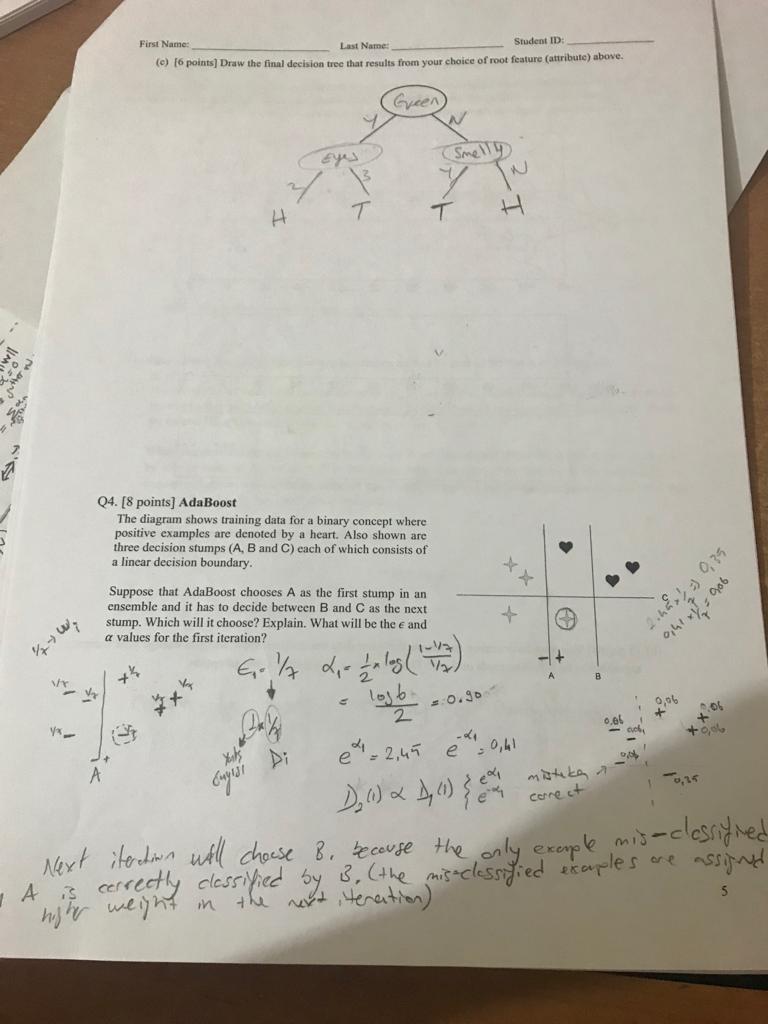 First Name: Last Name: Student ID:
(c) [6 points] Draw the final decision tree that results from your choice of root feature (attribute) above.
Green
Y N
Eyes Smelly
2 3 Y N
H T T H
Q4. [8 points] AdaBoost
The diagram shows training data for a binary concept where
positive examples are denoted by a heart. Also shown are
three decision stumps (A, B and C) each of which consists of
a linear decision boundary.
Suppose that AdaBoost chooses A as the first stump in an
ensemble and it has to decide between B and C as the next
stump. Which will it choose? Explain. What will be the ϵ and
α values for the first iteration?
C
A B
2.45 × 1/7 ⇒ 0,35
0,41 × 1/7 = 0,06
1/7 → wi
ϵ1 = 1/7 α1 = 1/2 × log((1-1/7)/(1/7))
= log6/2 = 0.90
1 × 1/7
Di
A
e^α1 = 2,45 e^-α1 = 0,41
D2(i) ∝ D1(i) { e^α1 mistaken
e^-α1 correct
0,06 0,06 0,06
0,06 0,06
0,06
-0,35
Next iteration will choose B, because the only example mis-classified
A is correctly classified by B. (the mis-classified examples are assigned
higher weight in the next iteration)
5